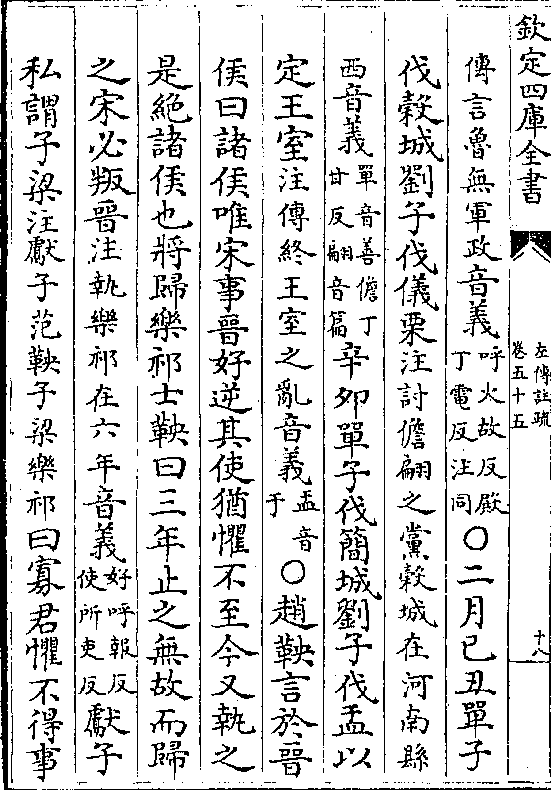 欽定四庫全書
左傳註疏
卷五十五
十八
傳言魯無軍政音義呼火故反殿
丁電反注同〇二月己丑單子
伐穀城劉子伐儀栗注討儋翩之黨穀城在河南縣
西音義單音善儋丁
甘反翩音篇辛夘單子伐簡城劉子伐盂以
定王室注傳終王室之亂音義盂音
于〇趙鞅言於晉
侯曰諸侯唯宋事晉好逆其使猶懼不至今又執之
是絶諸侯也將歸樂祁士鞅曰三年止之無故而歸
之宋必叛晉注執樂祁在六年音義好呼報反
使所吏反獻子
私謂子梁注獻子范鞅子梁樂祁曰寡君懼不得事